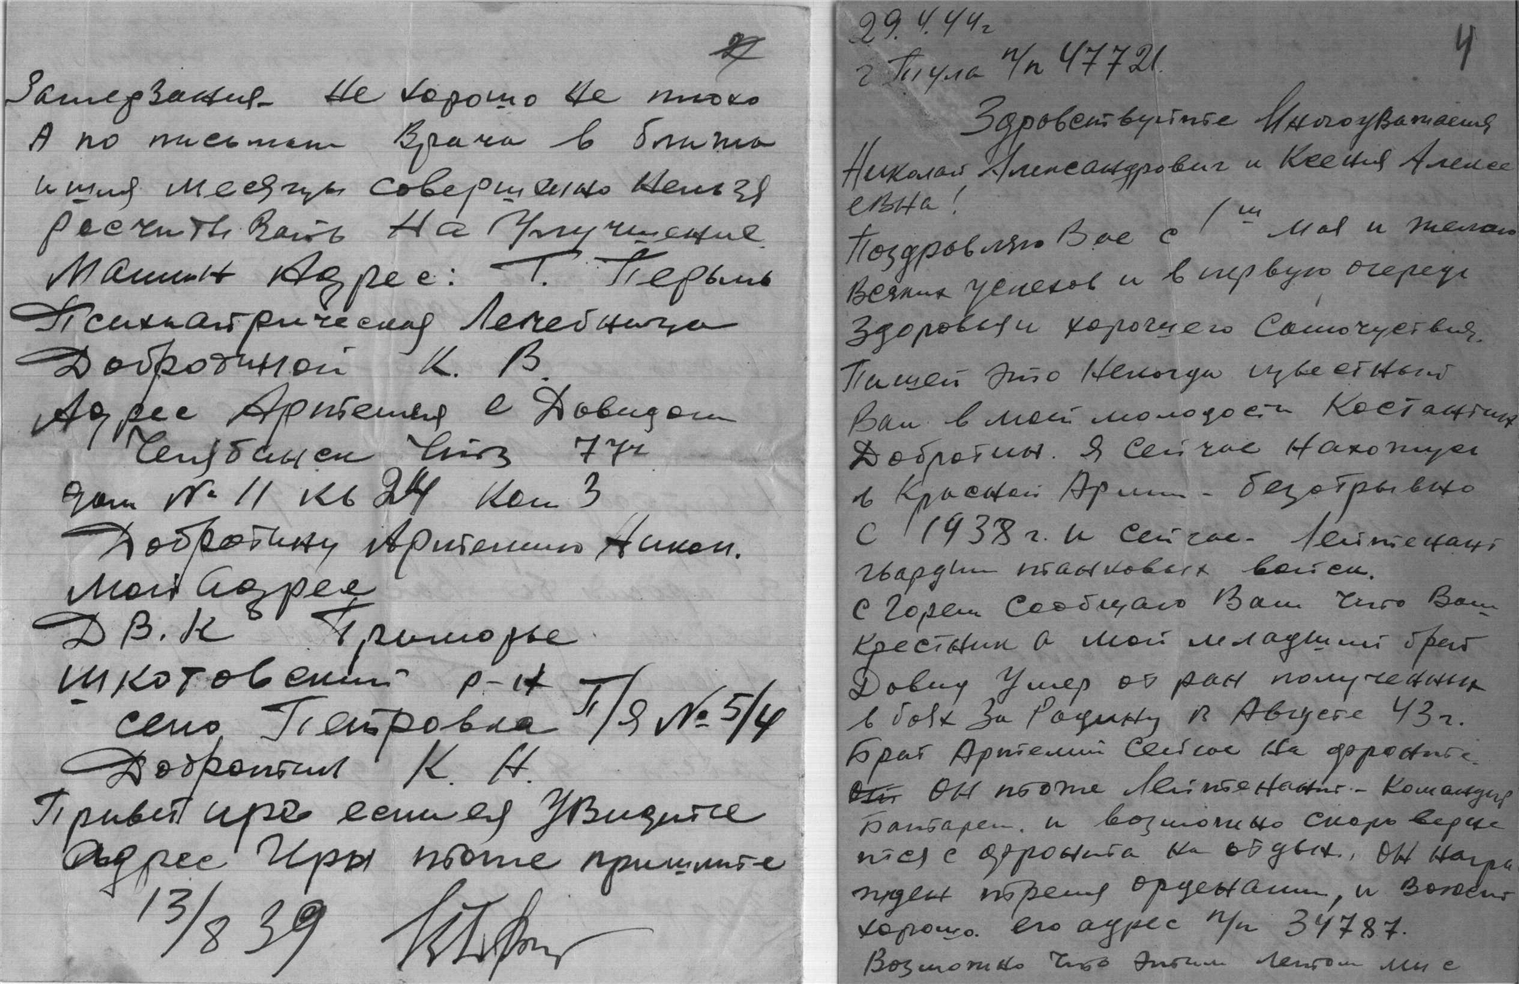 2
Замерзания Не хорошо Не плохо
А по письмам Врача в ближа
ишия месяцы совершенно Нельзя
расчитывать На Улучшение.
Мамин Адрес: Г. Пермь
Психиатрическая Лечебница
Добротиной К. В.
Адрес Артемия с Давидом
Челябинск Чтз 7 уч
дом № 11 кв 24 ком 3
Добротину Артемию Никол.
мой адрес
ДВ.К Приморье
шкотовский р-н
село Петровка П/Я № 5/4
Добротин К. Н.
Привет Ире если ея Увидите
Адрес Иры тоже пришлите
13/8 39
4
29.4.44г
г Тула п/п 47721.
Здравствуйте Многоуважаемыя
Николай Александрович и Ксения Алексе
евна!
Поздравляю Вас с 1 ш мая и желаю
Всяких успехов и в первую очередь
Здоровья и хорошего самочуствия.
Пишет это Некогда известный
Вам в мой молодости Костантин
Добротин. Я сейчас нахожусь
в Красной Армии - безотрывно
с 1938 г. и сейчас - Лейтенант
гвардии танковых войск.
С Горем сообщаю Вам что Ваш
крестник а мой младший брат
Давид Умер от ран полученных
в боях за Родину в Августе 43 г.
Брат Артемий сейчас на фронте.
ОН тоже Лейтенант - Командир
Баттареи. и возможно скоро верне
тся с фронта на отдых. ОН награ
жден тремя орденами, и воюет
хорошо. его адрес п/п 34787.
Возможно что этим летом мы с